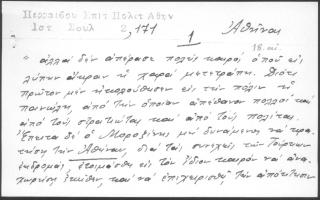 Περραιβού Επιτ Πολιτ Αθην
Ιστ Σουλ 2, 171
Ἀθῆναι
1
18. αἰ.
" ἀλλὰ δὲν ἀπέρασε πολὺς καιρὸς ὁποῦ εἰς
λύπην ἄκραν ἡ χαρὰ μετετράπη. Διότι
πρῶτον μὲν ἠκολούθησεν εἰς τὴν πόλιν ἡ
πανώλης, ἀπὸ τὴν ὁποίαν ἀπέθανον πολλοὶ καὶ
ἀπὸ τοὺς στρατιώτας καὶ ἀπὸ τοὺς πολίτας.
Ἔπειτα δὲ ὁ Μοροζίνης μὴ δυνάμενος νὰ κρα-
τήσῃ τὴν Ἀθήναν, διὰ τὰς συνεχεῖς τῶν Τούρκων
ἐκδρομάς, ἑτοιμάσθη εἰς τὸν ἴδιον καιρὸν νὰ ἀνα-
χωρήσῃ ἐκεῖθεν, καὶ νὰ ἐπιχειρισθῇ τὴν ἀπόκτησιν